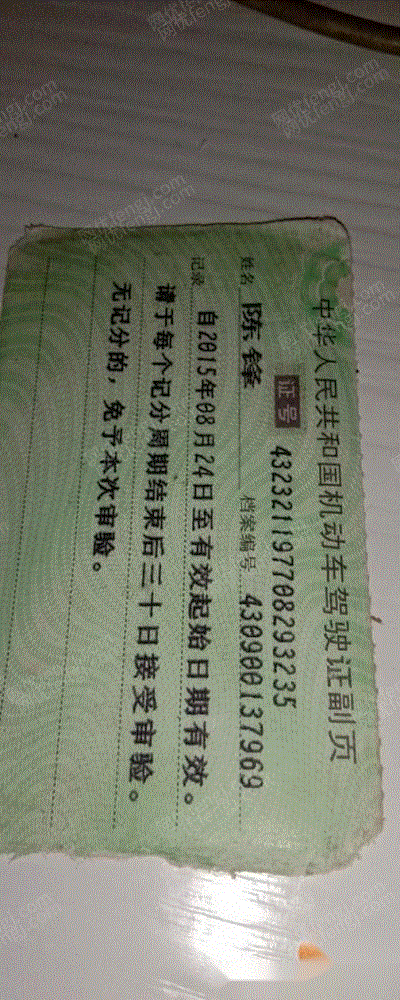 中华人民共和国机动车驾驶证副页
证号 432321197708293235
姓名 陈锋 档案编号 430900137969
记录 自2015年08月24日至有效起始日期有效。
请于每个记分周期结束后三十日接受审验。
无记分的，免予本次审验。